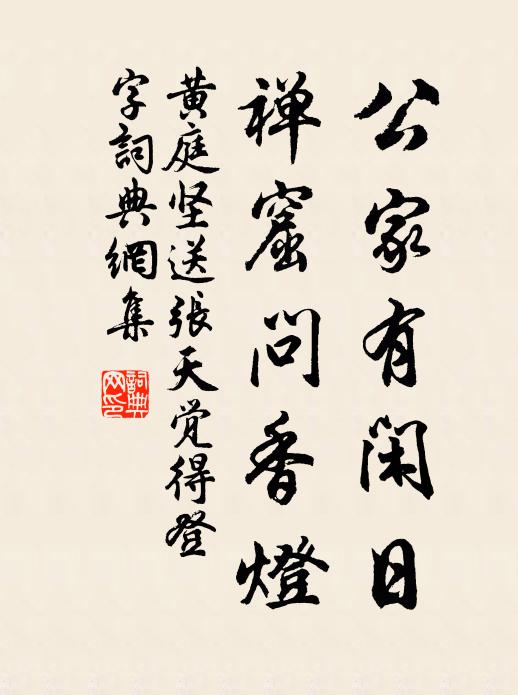 公家有闲日
禅窟问香燈
黄庭坚送張天觉得登
字詞典網集
詞典
网印